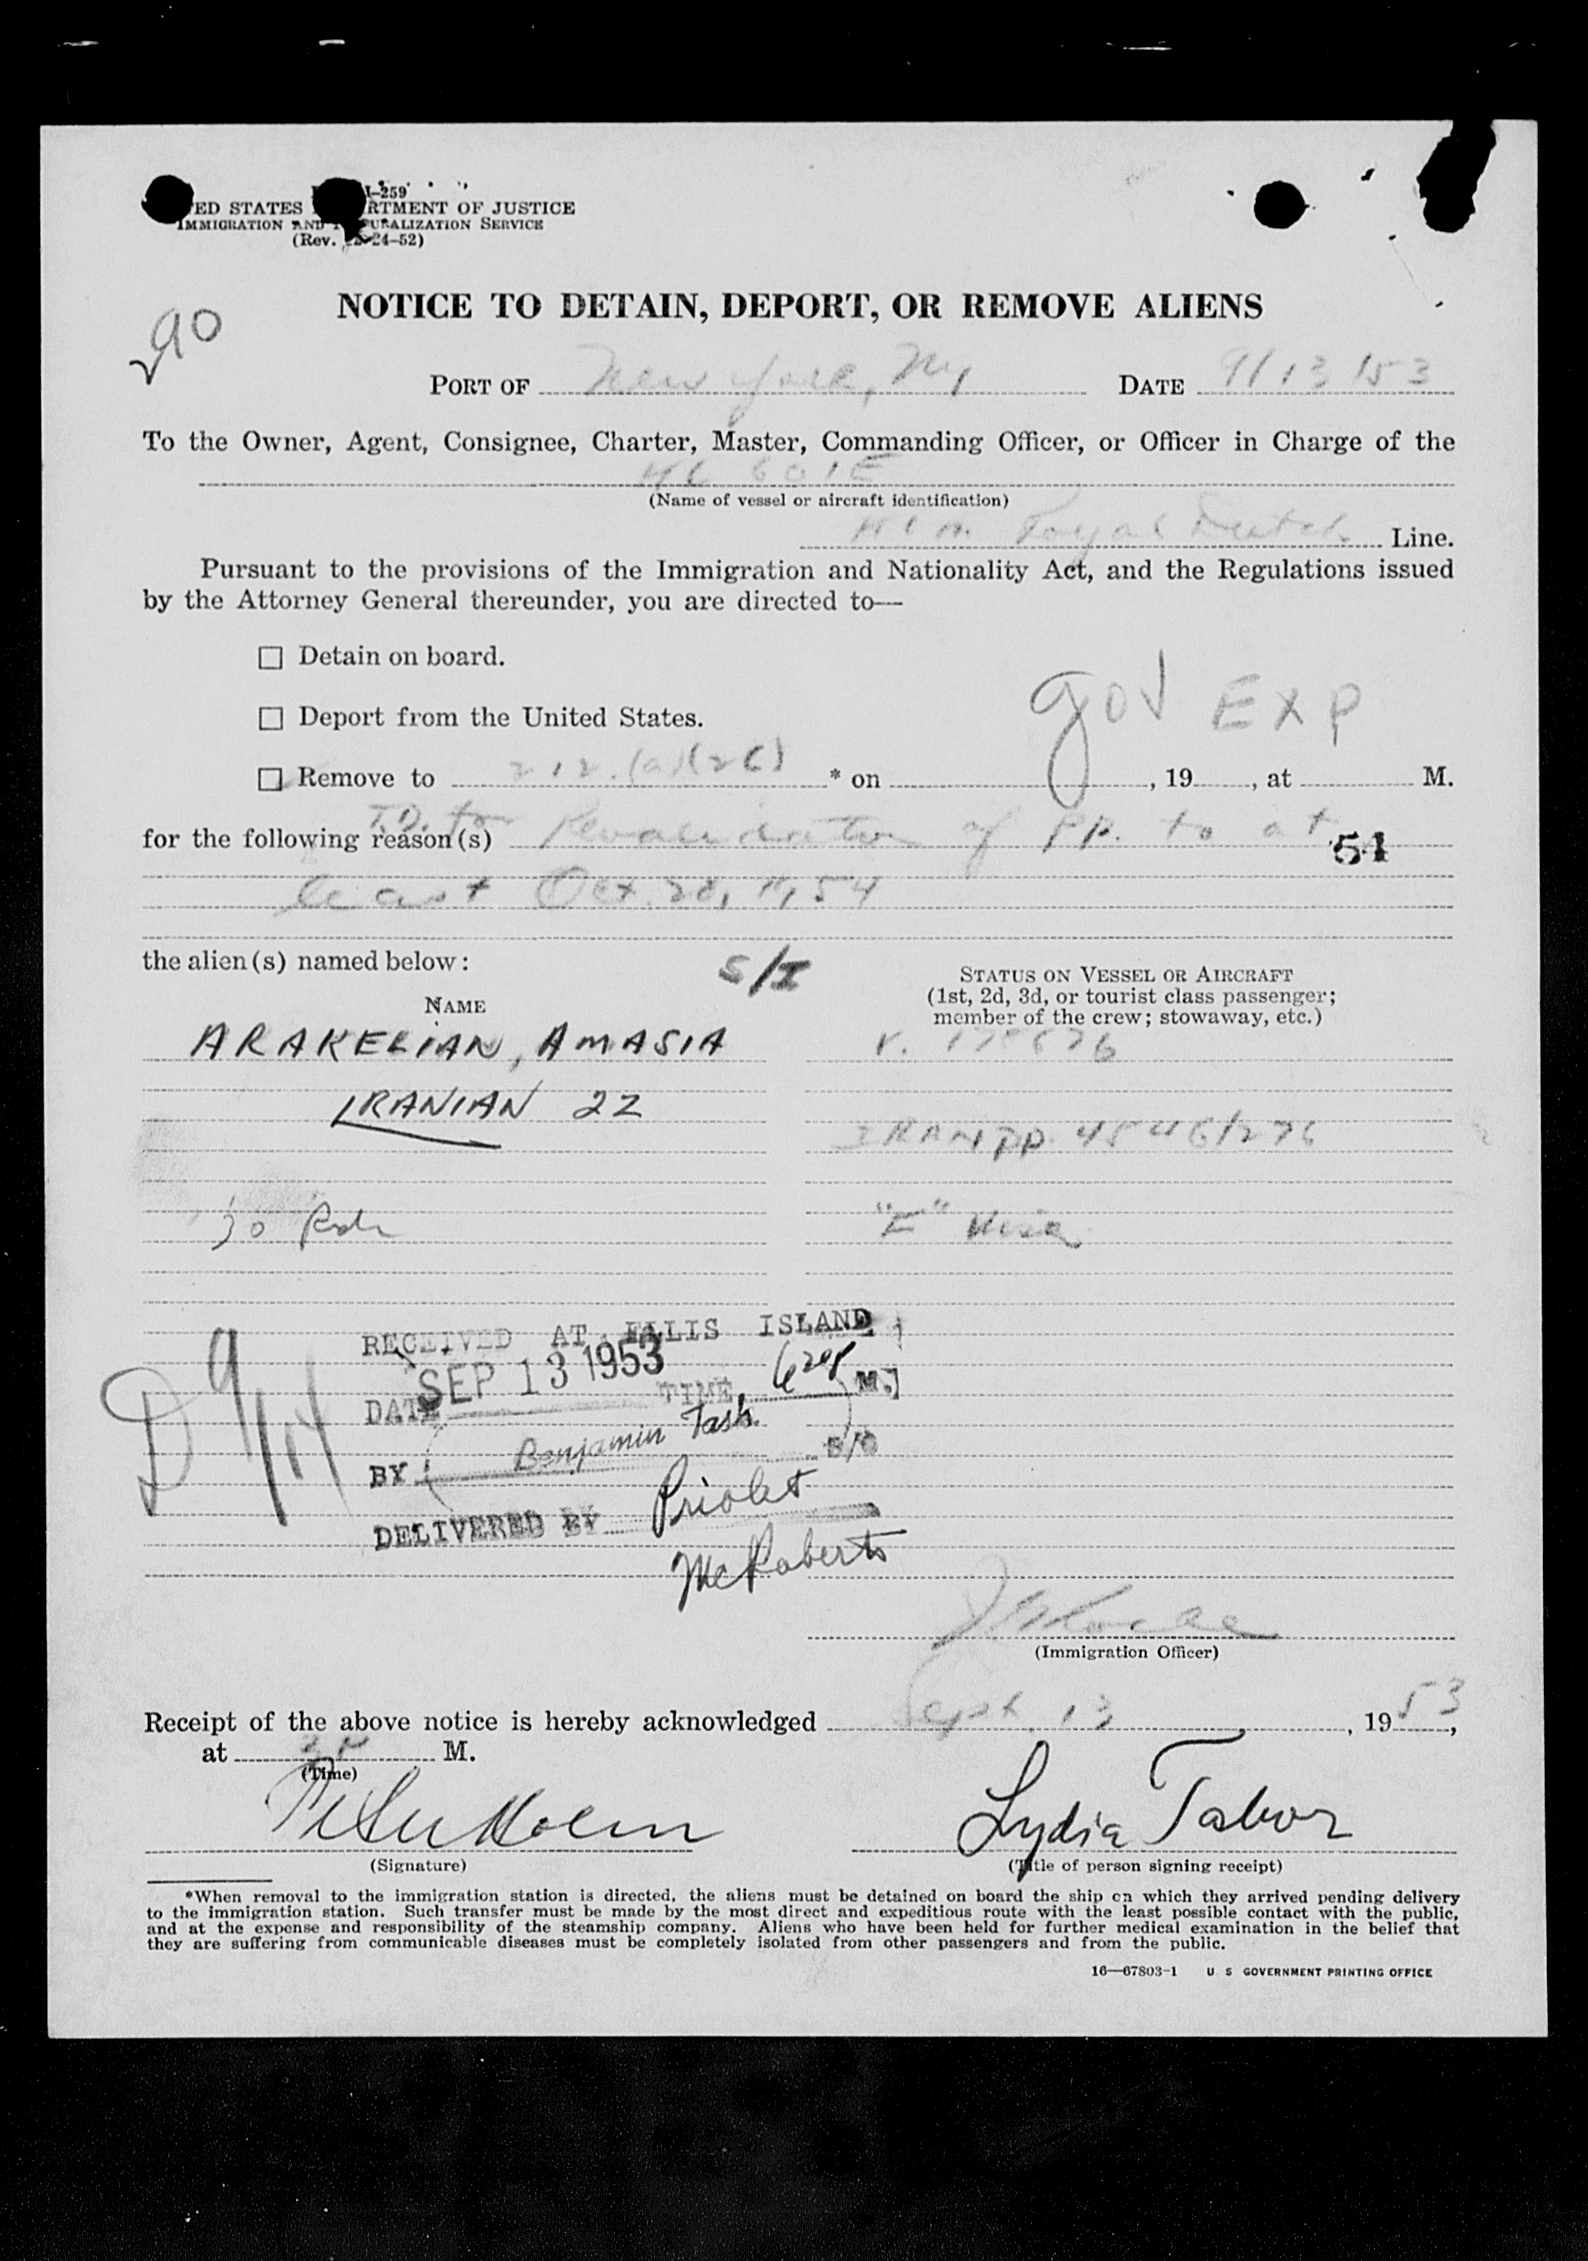 I-259
ED STATES RTMENT OF JUSTICE
IMMIGRATION AND URALIZATION SERVICE
(Rev. 24-52)
NOTICE TO DETAIN, DEPORT, OR REMOVE ALIENS
90
PORT OF New York, NY DATE 9/13/53
To the Owner, Agent, Consignee, Charter, Master, Commanding Officer, or Officer in Charge of the
601E
(Name of vessel or aircraft identification)
KLM Royal Dutch Line.
Pursuant to the provisions of the Immigration and Nationality Act, and the Regulations issued
by the Attorney General thereunder, you are directed to—
☐ Detain on board.
☐ Deport from the United States.
gov EXP
☐ Remove to 212.(a)(26) * on , 19 , at M.
for the following reason(s) T.D. for Revalidation of PP. to at
51
least Oct. 28, 1954
the alien(s) named below:
S/I
STATUS ON VESSEL OR AIRCRAFT
(1st, 2d, 3d, or tourist class passenger;
member of the crew; stowaway, etc.)
NAME
ARAKELIAN, AMASIA
V.
IRANIAN 22
IRAN PP.
30
"E" Visa
RECEIVED AT ELLIS ISLAND
DATE SEP 13 1953 TIME M.
D 9/14
BY Benjamin Tash S/O
DELIVERED BY Priolet
McRoberts
(Immigration Officer)
Receipt of the above notice is hereby acknowledged Sept 13, 1953,
at M.
(Time)
Lydia Tabor
(Signature) (Title of person signing receipt)
*When removal to the immigration station is directed, the aliens must be detained on board the ship on which they arrived pending delivery
to the immigration station. Such transfer must be made by the most direct and expeditious route with the least possible contact with the public,
and at the expense and responsibility of the steamship company. Aliens who have been held for further medical examination in the belief that
they are suffering from communicable diseases must be completely isolated from other passengers and from the public.
16—67803-1 U S GOVERNMENT PRINTING OFFICE